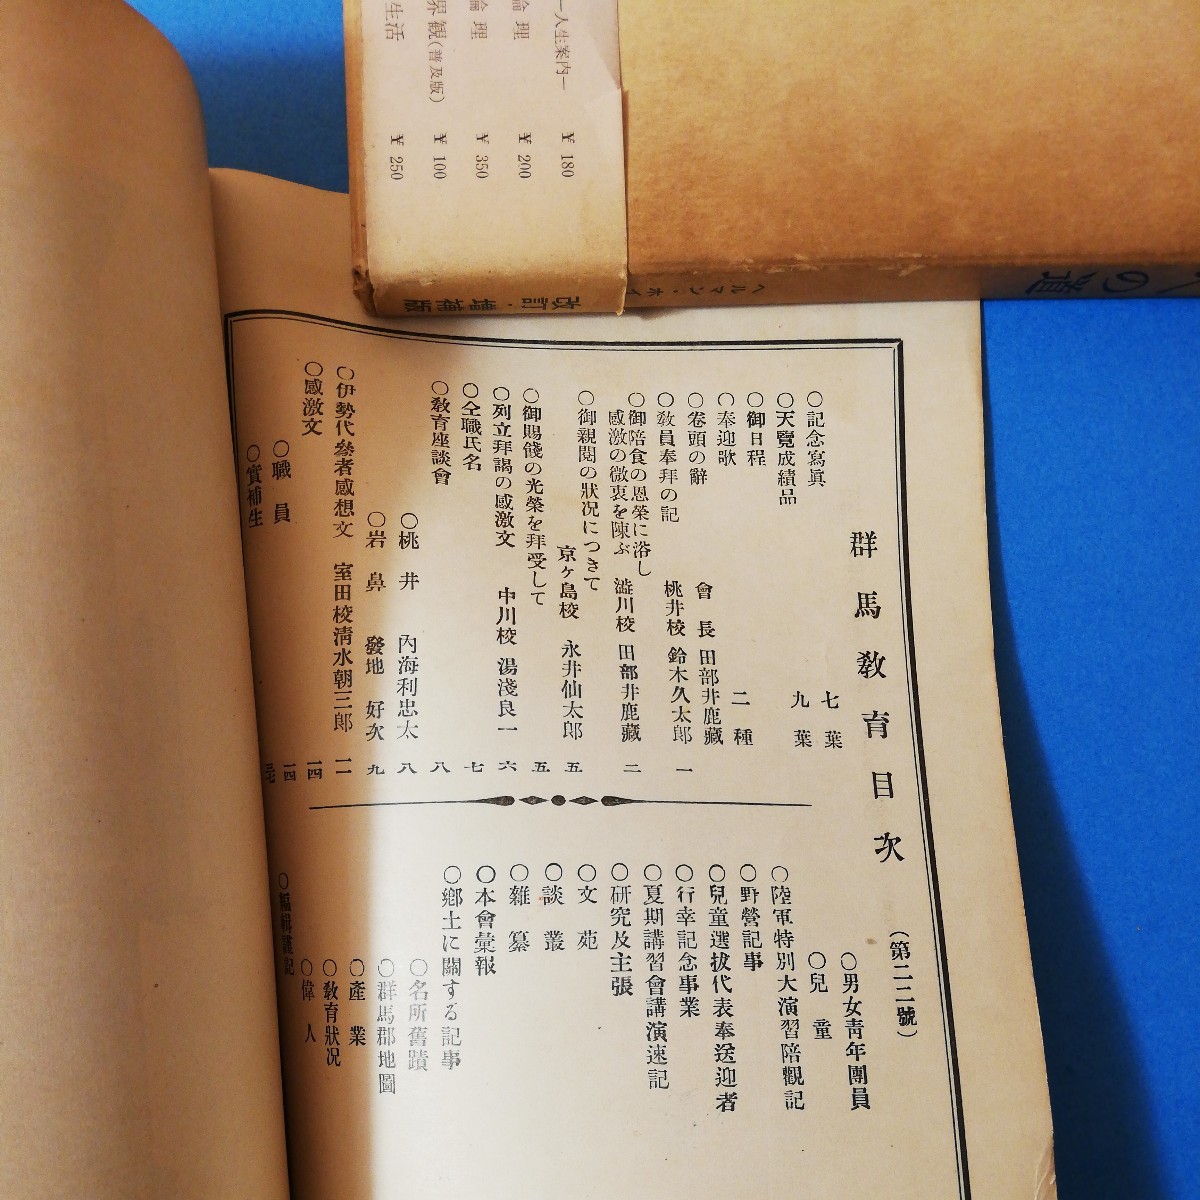 群馬教育目次
（第二二號）
○記念寫眞 七葉
○天覽成績品 九葉
○御日程
○奉迎歌 二種
○卷頭の辭 會長 田部井鹿藏
○教員奉拜の記 桃井校 鈴木久太郎 一
○御陪食の恩榮に浴し
感激の微衷を陳ぶ 澁川校 田部井鹿藏 二
○御親閲の狀況につきて
京ヶ島校 永井仙太郎 五
○御賜餞の光榮を拜受して 五
○列立拜謁の感激文 中川校 湯淺良一 六
○仝職氏名 七
○教育座談會 八
○桃井 內海利忠太 八
○岩鼻 發地好次 九
○伊勢代參者感想文 室田校清水朝三郎 一一
○感激文 一四
○職員 一四
○實補生
○男女青年團員
○兒童
○陸軍特別大演習陪觀記
○野營記事
○兒童選拔代表奉送迎者
○行幸記念事業
○夏期講習會講演速記
○研究及主張
○文苑
○談叢
○雜纂
○本會彙報
○鄉土に關する記事
○名所舊蹟
○群馬郡地圖
○產業
○教育狀況
○偉人
○編輯後記
―人生案内― ¥180
論理 ¥200
論理 ¥350
界観(普及版) ¥100
生活 ¥250
改訂・増補版
ヘルマン・ホイ
への道